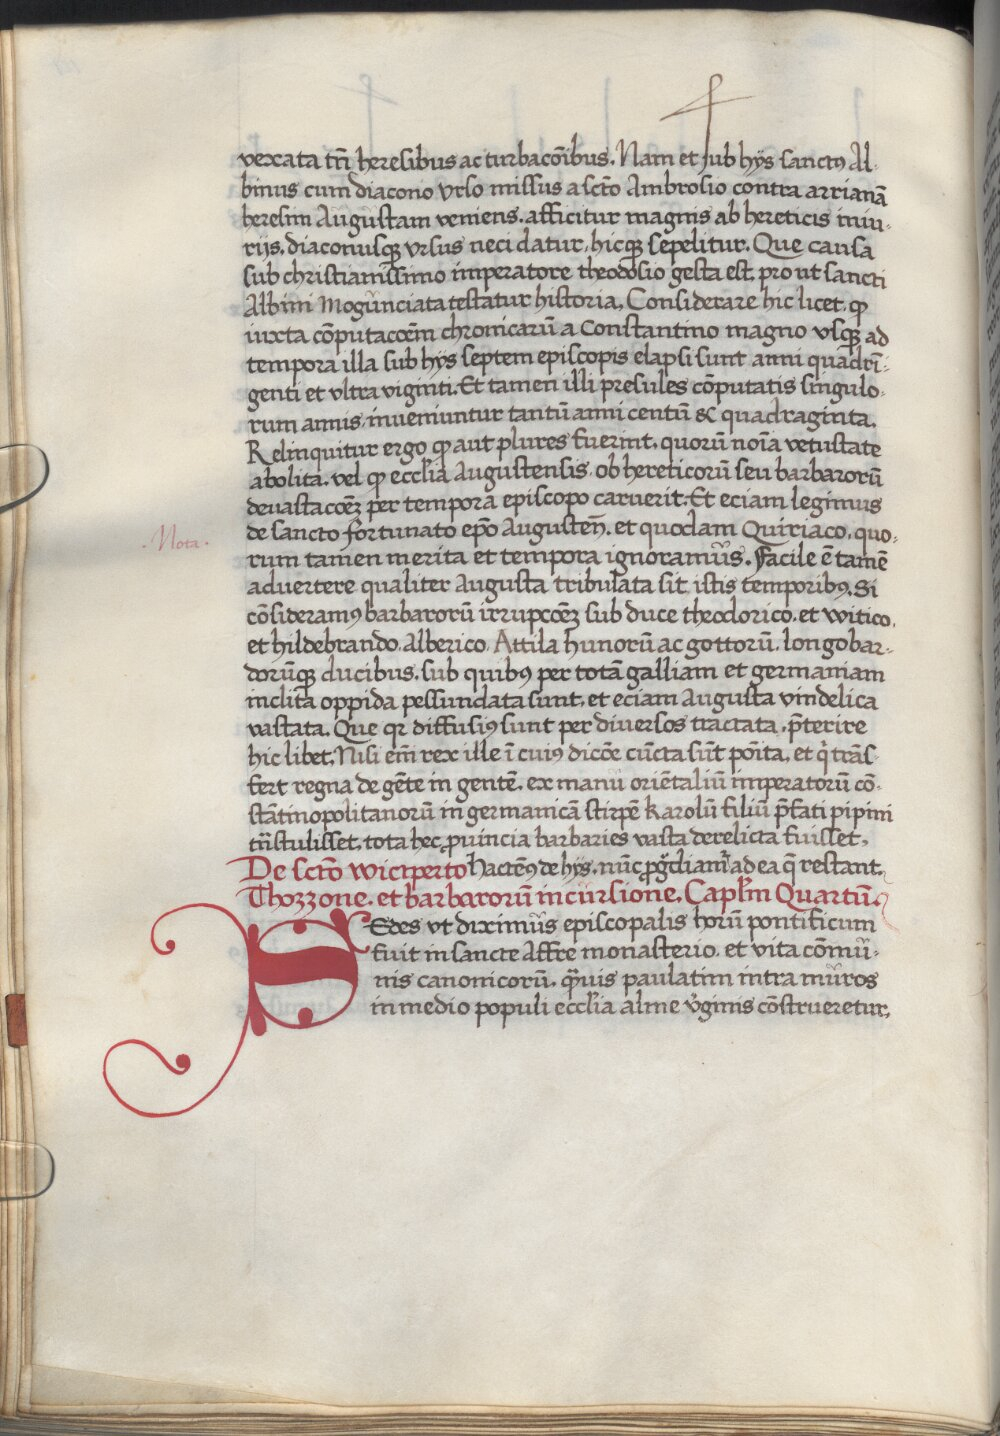 vexata tn̄ heresibus ac turbacōibus. Nam et sub hÿs sanctꝰ Al-
binus cum diacono vrso missus a scto Ambrosio contra arrianā
heresim Augustam veniens. afficitur magnis ab hereticis iniu-
rijs. diaconusqꝫ vrsus neci datur, hicqꝫ sepelitur. Que causa
sub christianissimo imperatore theodosio gesta est, prout sancti
Albini Mogunciata testatur historia. Considerare hic licet. ꝙ
iuxta cōputaccōem chronicarū a Constantino magno vsqꝫ ad
tempora illa sub hÿs septem episcopis elapsi sunt anni quadri-
genti et vltra viginti. Et tamen illi presules cōputatis singulo-
rum annis, inueniuntur tantū anni centū & quadraginta.
Relinquitur ergo ꝙ aut plures fuerint. quorū noīa vetustate
abolita. vel ꝙ eccl̄ia Augustensis. ob hereticorū seu barbarorū
deuastacōeꝫ per tempora episcopo caruerit. Et eciam legimus
·Nota·
de sancto fortunato ep̄o Augusten̄. et quodam Quiriaco. quo-
rum tamen merita et tempora ignoramus. Facile ē tamē
aduertere qualiter Augusta tribulata sit istis temporibꝰ. Si
cōsideramꝰ barbarorū irrupcōeꝫ sub duce theodorico. et witico.
et hildebrando. alberico. Attila hunorū ac gottorū. longobar-
dorūqꝫ ducibus. sub quibꝰ per totā galliam et germaniam
inclita oppida pessundata sunt. et eciam Augusta vindelica
vastata. Que qꝛ diffusiꝰ sunt per diuersos tractata. p̄terire
hic libet. Nisi em̄ rex ille ī cuiꝰ dicōe cūcta sūt pōita. et qͥ trās-
fert regna de gēte in gentē. ex manu oriētaliū imperatorū cō-
stātinopolitanorū in germanicā stirpē karolū filiū p̄fati pipini
tn̄stulisset. tota hec ꝓuincia barbaries vasta derelicta fuisset.
De scto wicterpto hactenꝰ de hÿs. nūc ꝓgͣdiamͬ ad ea q̄ restant.
Thozzone. et barbarorū incursione. Capl̄m Quartū.
Sedes vt diximus episcopalis horū pontificum
fuit in sancte Affre monasterio. et vita cōmu-
nis canonicorū. qͣuis paulatim intra muros
in medio populi eccl̄ia alme vͥginis cōstrueretur.